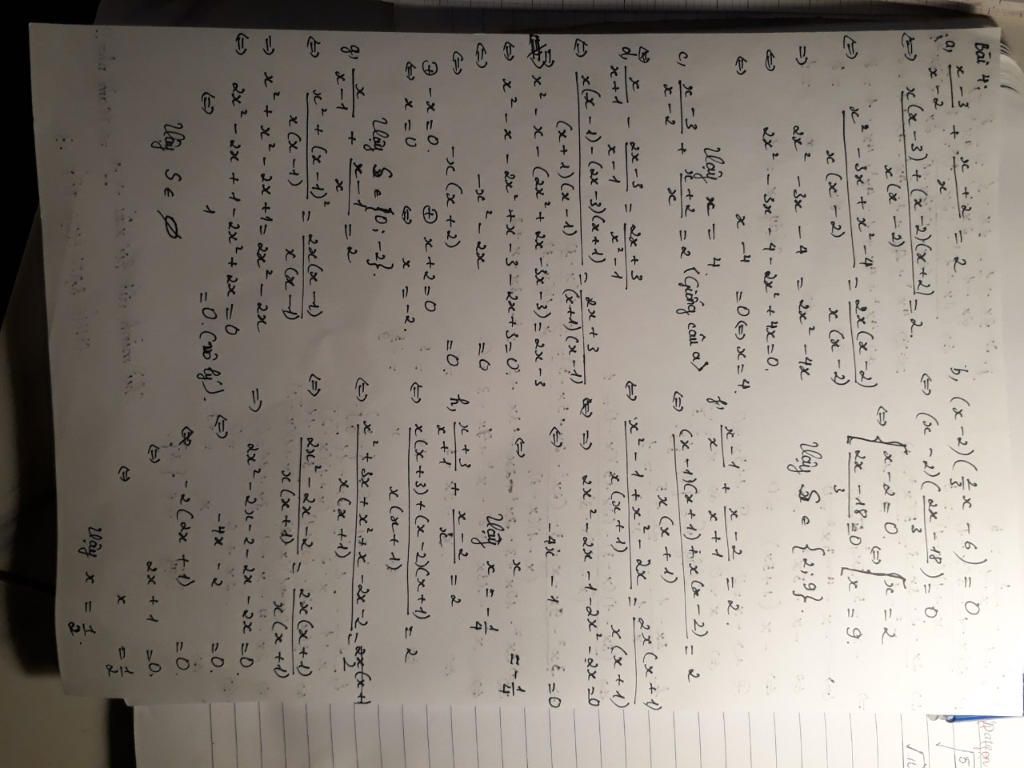 Bài 4:
a, x-3/x-2 + x+2/x = 2
⇔ x(x-3)+(x-2)(x+2)/x(x-2) = 2.
⇔ x² -3x + x² -4/x(x-2) = 2x(x-2)/x(x-2)
⇒ 2x² -3x -4 = 2x² -4x
⇔ 2x² -3x -4 -2x² +4x = 0.
⇔ x -4 = 0 ⇔ x = 4.
Vậy x = 4
c, x-3/x-2 + x+2/x = 2 (Giống câu a)
d, x/x+1 - 2x-3/x-1 = 2x+3/x²-1
⇔ x(x-1)-(2x-3)(x+1)/(x+1)(x-1) = 2x+3/(x+1)(x-1)
x² -x -(2x² +2x -3x -3) = 2x -3
⇔ x² -x -2x² +x -3 -2x +3 = 0.
⇔ -x² -2x = 0
⇔ -x(x+2) = 0.
+ -x = 0. + x+2 = 0
⇔ x = 0 ⇔ x = -2.
Vậy S ∈ {0; -2}.
g, x/x-1 + x-1/x = 2
⇔ x² +(x-1)²/x(x-1) = 2x(x-1)/x(x-1)
⇒ x² + x² -2x +1 = 2x² -2x
⇔ 2x² -2x +1 -2x² +2x = 0
⇔ 1 = 0 (vô lý).
Vậy S ∈ ∅
b, (x-2)(2/3x -6) = 0.
⇔ (x-2)(2x-18/3) = 0
⇔ x-2 = 0 ⇔ x = 2
2x-18/3 = 0 x = 9.
Vậy S ∈ {2; 9}
f, x-1/x + x-2/x+1 = 2.
⇔ (x-1)(x+1)+x(x-2)/x(x+1) = 2
⇔ x² -1 + x² -2x/x(x+1) = 2x(x+1)/x(x+1)
⇒ 2x² -2x -1 -2x² -2x = 0
⇔ -4x -1 = 0
⇔ x = -1/4
Vậy x = -1/4
h, x+3/x+1 + x-2/x = 2
⇔ x(x+3)+(x-2)(x+1)/x(x+1) = 2
⇔ x² +3x + x² +x -2x -2/x(x+1) = 2x(x+1
⇔ 2x² -2x -2/x(x+1) = 2x(x+1)/x(x+1)
⇒ 2x² -2x -2 -2x -2x = 0.
⇔ -4x -2 = 0.
⇔ -2(2x+1) = 0.
⇔ 2x+1 = 0.
⇔ x = 1/2
Vậy x = 1/2.